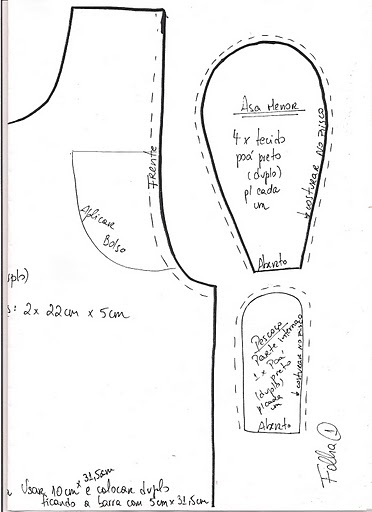 Frente
Aplicar
Bolso
Asa Menor
4 x tecido
poá preto
(duplo)
p/ cada
um
↓ costurar no risco
Aberto
Pescoço
Parte Interna
1 x Poá
preto
(duplo)
p/ cada
um
↓ costurar no risco
Aberto
uplo)
s: 2 x 22cm x 5cm
Usar 10cm x 31,5cm e colocar duplo
ficando a barra com 5cm x 31,5cm
Folha 1